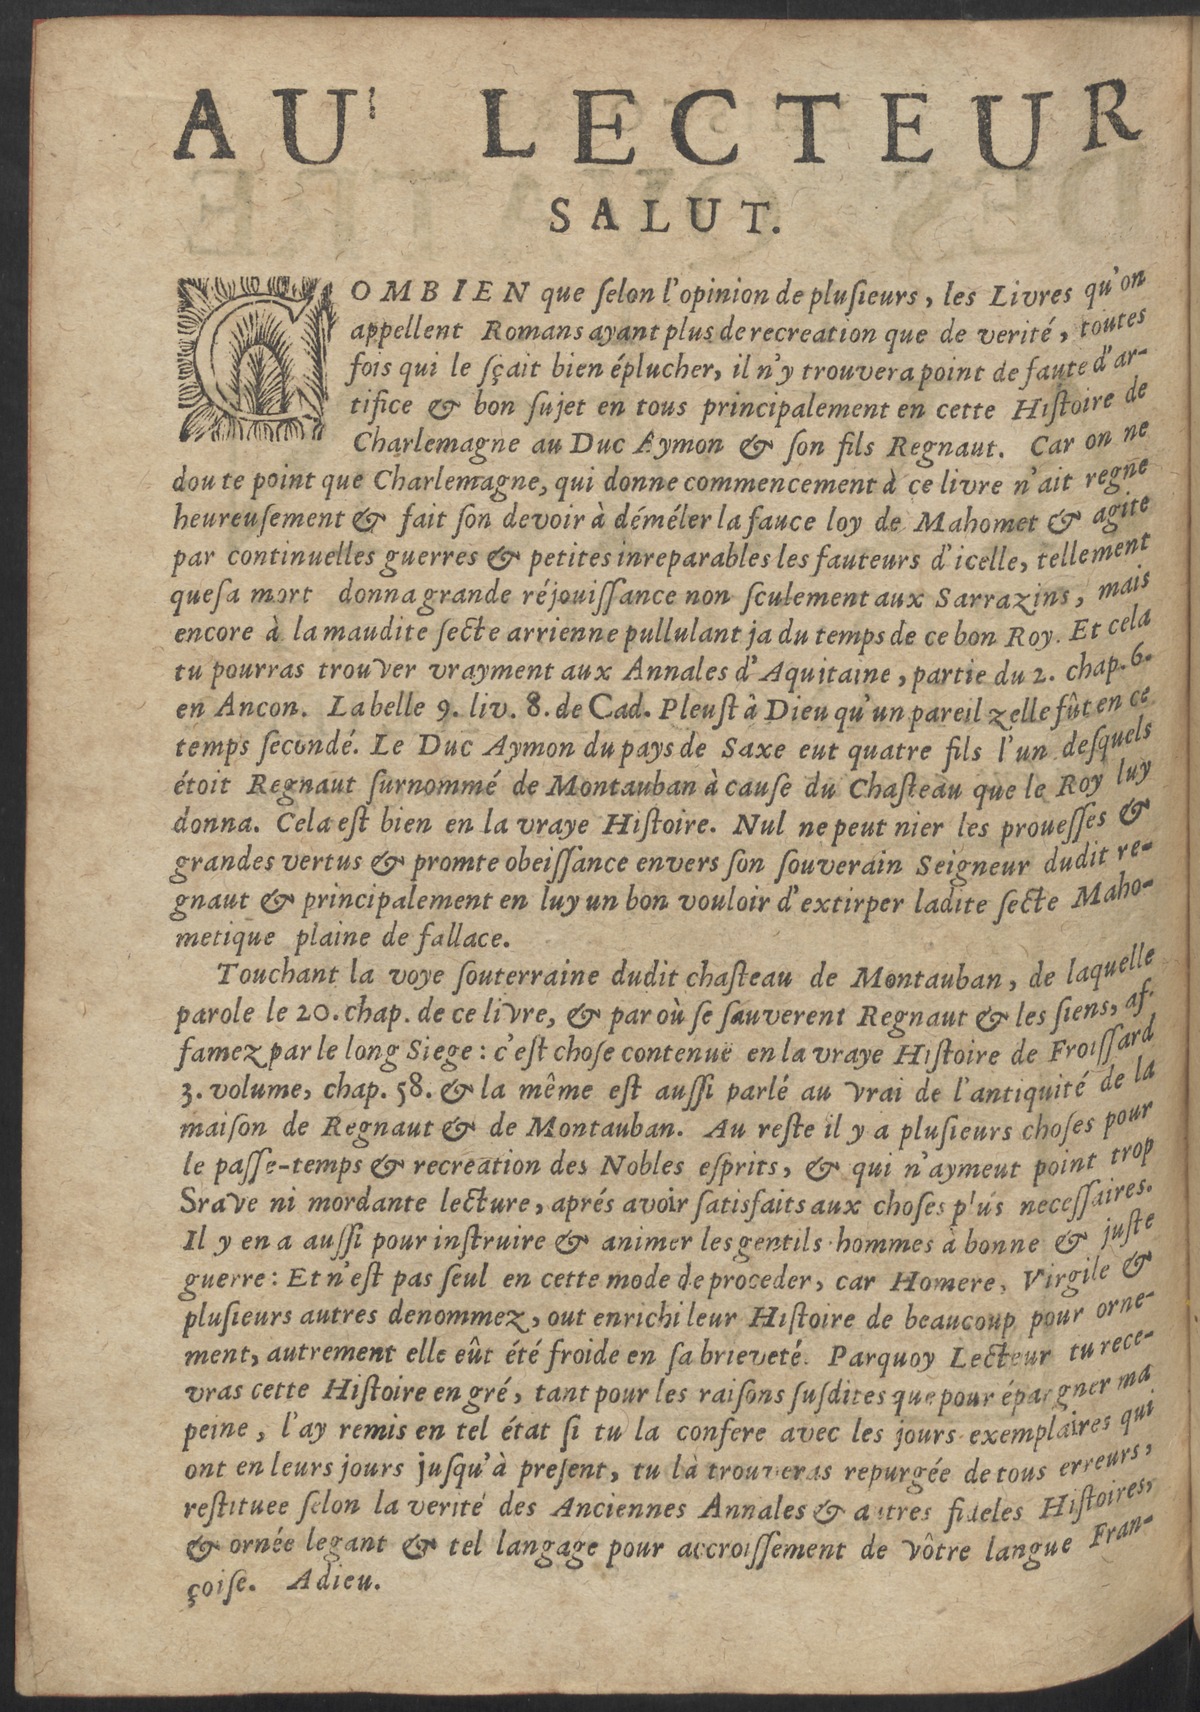 AU LECTEUR
SALUT.
COMBIEN que ſelon l'opinion de pluſieurs, les Livres qu'on
appellent Romans ayant plus de recreation que de verité, toutes
fois qui le ſçait bien éplucher, il n'y trouvera point de faute d'ar-
tifice & bon ſujet en tous principalement en cette Hiſtoire de
Charlemagne au Duc Aymon & ſon fils Regnaut. Car on ne
doute point que Charlemagne, qui donne commencement à ce livre n'ait regne
heureuſement & fait ſon devoir à déméler la fauce loy de Mahomet & agité
par continuelles guerres & petites inreparables les fauteurs d'icelle, tellement
que ſa mort donna grande réjouiſſance non ſculement aux Sarrazins, mais
encore à la maudite ſecte arrienne pullulant ja du temps de ce bon Roy. Et cela
tu pourras trouver vrayment aux Annales d'Aquitaine, partie du 2. chap. 6.
en Ancon. Labelle 9. liv. 8. de Cad. Pleuſt à Dieu qu'un pareil zelle fût en ce
temps ſecondé. Le Duc Aymon du pays de Saxe eut quatre fils l'un deſquels
étoit Regnaut ſurnommé de Montauban à cauſe du Chaſteau que le Roy luy
donna. Cela eſt bien en la vraye Hiſtoire. Nul ne peut nier les proueſſes &
grandes vertus & promte obeiſſance envers ſon ſouverain Seigneur dudit re-
gnaut & principalement en luy un bon vouloir d'extirper ladite ſecte Maho-
metique plaine de fallace.
Touchant la voye ſouterraine dudit chaſteau de Montauban, de laquelle
parole le 20. chap. de ce livre, & par où ſe ſauverent Regnaut & les ſiens, af-
famez par le long Siege : c'eſt choſe contenuë en la vraye Hiſtoire de Froiſſard
3. volume, chap. 58. & la même eſt auſſi parlé au vrai de l'antiquité de la
maiſon de Regnaut & de Montauban. Au reſte il y a pluſieurs choſes pour
le paſſe-temps & recreation des Nobles eſprits, & qui n'aymeut point trop
Srave ni mordante lecture, aprés avoir ſatisfaits aux choſes plus neceſſaires.
Il y en a auſſi pour inſtruire & animer les gentils-hommes à bonne & juſte
guerre : Et n'eſt pas ſeul en cette mode de proceder, car Homere, Virgile &
pluſieurs autres denommez, out enrichi leur Hiſtoire de beaucoup pour orne-
ment, autrement elle eût été froide en ſa brieveté. Parquoy Lecteur tu rece-
vras cette Hiſtoire en gré, tant pour les raiſons ſuſdites que pour épargner ma
peine, l'ay remis en tel état ſi tu la confere avec les jours exemplaires qui
ont en leurs jours juſqu'à preſent, tu la trouveras repurgée de tous erreurs,
reſtituee ſelon la verité des Anciennes Annales & autres fideles Hiſtoires,
& ornée legant & tel langage pour accroiſſement de vôtre langue Fran-
çoiſe. Adieu.